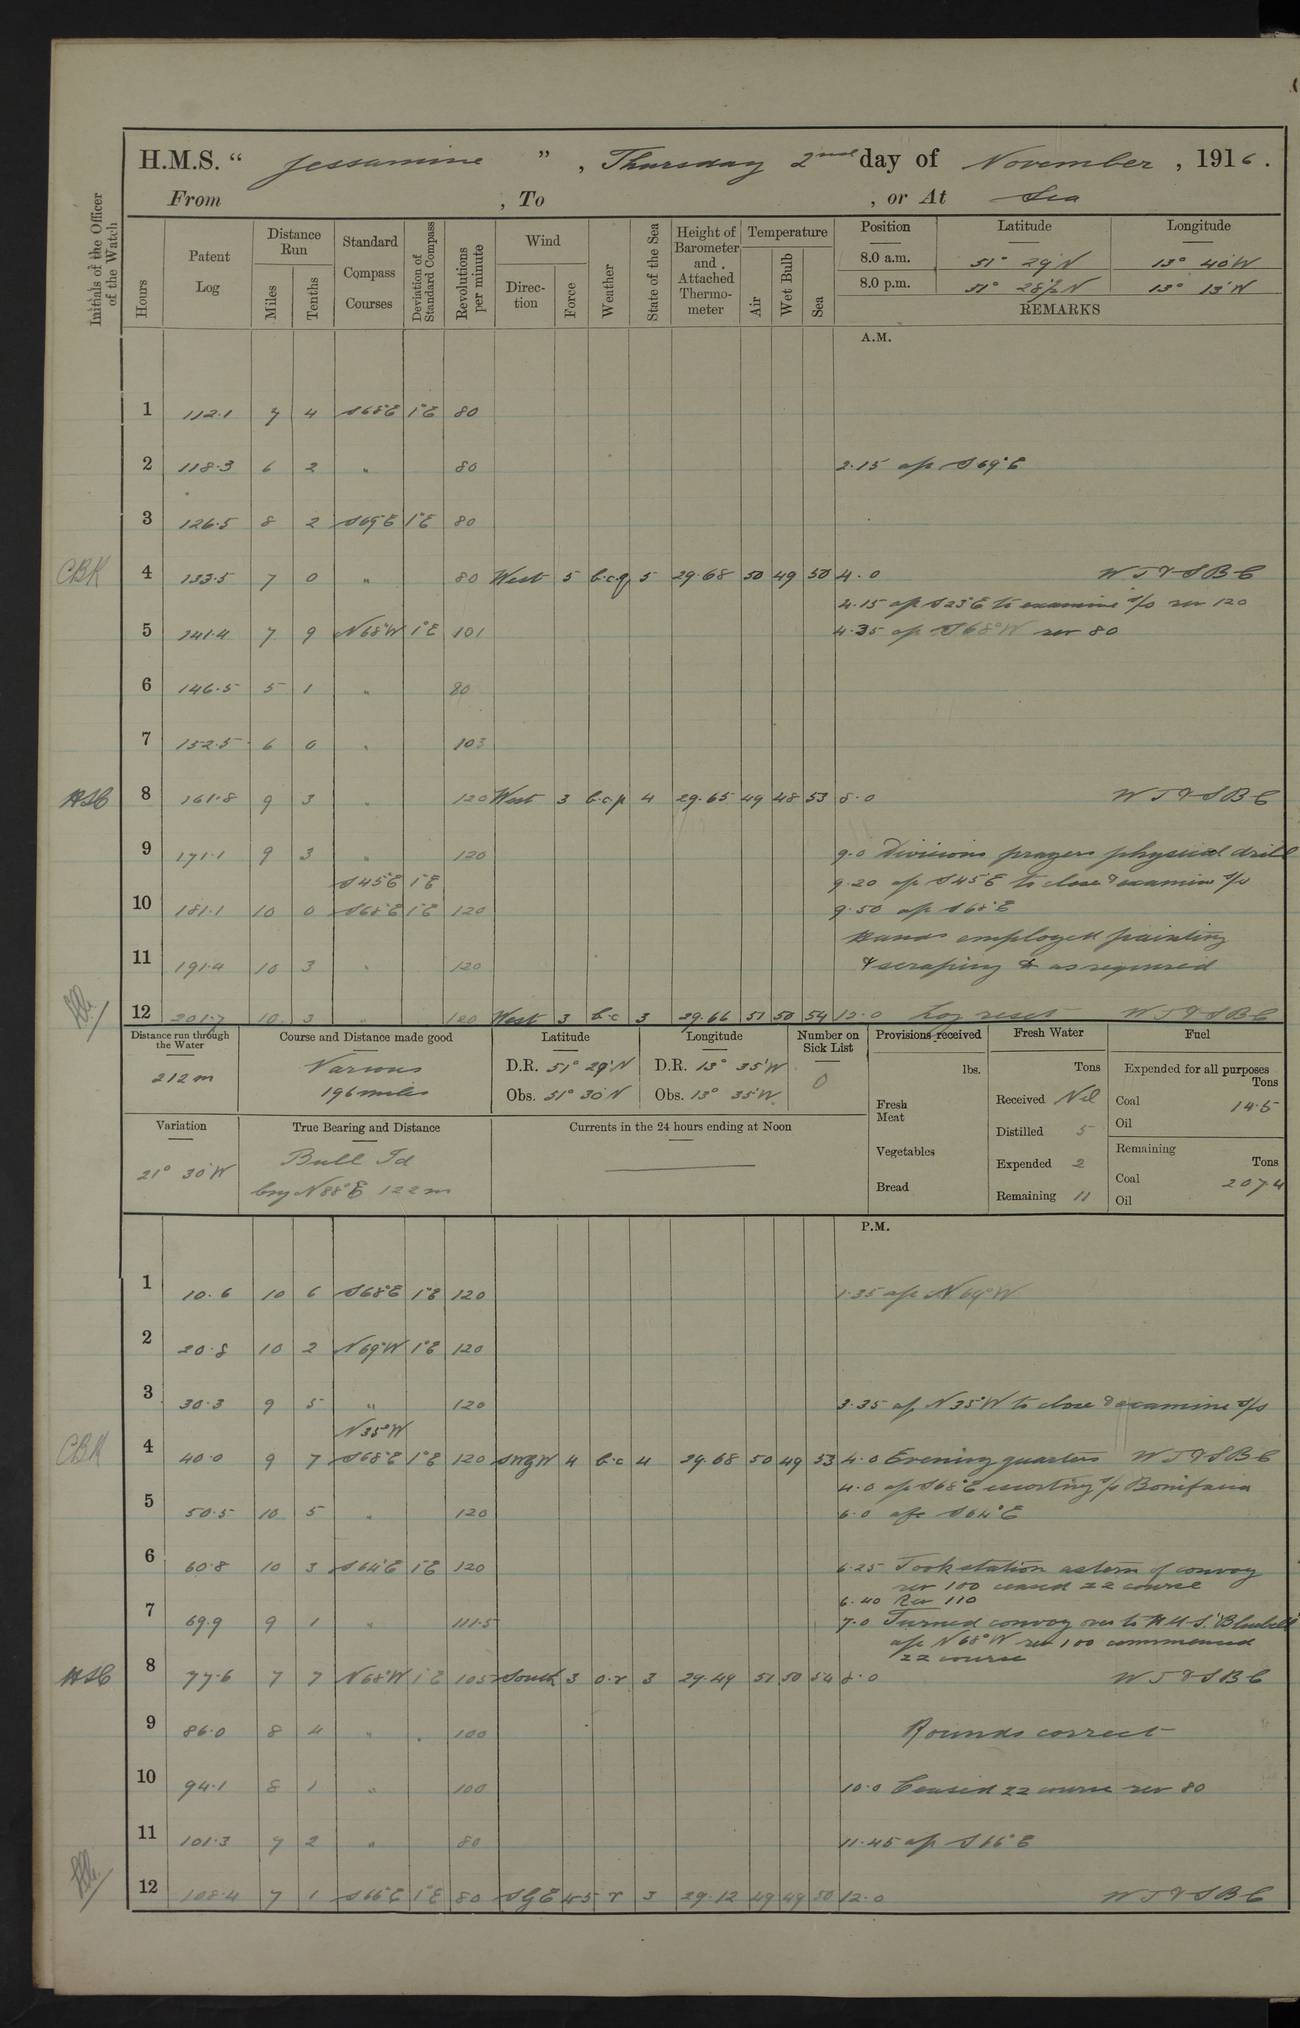 H.M.S. “ Jessamine ” , Thursday 2nd day of November , 1916 .
From , To , or At Sea
Initials of the Officer of the Watch
Hours
Patent Log
Distance Run
Miles
Tenths
Standard Compass Courses
Deviation of Standard Compass
Revolutions per minute
Wind
Direction
Force
Weather
State of the Sea
Height of Barometer and Attached Thermometer
Temperature
Air
Wet Bulb
Sea
Position Latitude Longitude
8.0 a.m. 51° 29'N 13° 40'W
8.0 p.m. 51° 28½N 13° 13'W
REMARKS
A.M.
1 112.1 7 4 S68°E 1°E 80
2 118.3 6 2 " 80 2.15 a/c S69°E
3 126.5 8 2 S69°E 1°E 80
CBK 4 133.5 7 0 " 80 West 5 b.c.q 5 29.68 50 49 50 4.0 W T & S B C
4.15 a/c S23°E to examine s/s rev 120
5 141.4 7 9 N68°W 1°E 101 4.35 a/c S68°W rev 80
6 146.5 5 1 " 80
7 152.5 6 0 " 103
8 161.8 9 3 " 120 West 3 b.c.p 4 29.65 49 48 53 8.0 W T & S B C
9 171.1 9 3 " 120 9.0 Divisions prayers physical drill
S45°E 1°E 9.20 a/c S45°E to close & examine s/s
10 181.1 10 0 S68°E 1°E 120 9.50 a/c S68°E
Hands employed painting
11 191.4 10 3 " 120 & scraping & as required
12 201.7 10 3 " 120 West 3 b.c 3 29.66 51 50 54 12.0 Log reset W T & S B C
Distance run through the Water
212m
Course and Distance made good
Various
196 miles
Latitude
D.R. 51° 29'N
Obs. 51° 30'N
Longitude
D.R. 13° 35'W
Obs. 13° 35'W
Number on Sick List
0
Provisions received
lbs.
Fresh Meat
Vegetables
Bread
Fresh Water
Tons
Received Nil
Distilled 5
Expended 2
Remaining 11
Fuel
Expended for all purposes
Tons
Coal 14.5
Oil
Remaining
Tons
Coal 207.4
Oil
Variation
21° 30'W
True Bearing and Distance
Bull Id
brg N88°E 122m
Currents in the 24 hours ending at Noon
P.M.
1 10.6 10 6 S68°E 1°E 120 1.35 a/c N69°W
2 20.8 10 2 N69°W 1°E 120
3 30.3 9 5 " 120 3.35 a/c N35°W to close & examine s/s
N35°W
CBK 4 40.0 9 7 S68°E 1°E 120 SWBW 4 b.c 4 29.68 50 49 53 4.0 Evening quarters W T & S B C
4.0 a/c S68°E escorting s/s
5 50.5 10 5 " 120 6.0 a/c S64°E
6 60.8 10 3 S64°E 1°E 120 6.25 Took station astern of convoy
rev 100 ceased 22 course
6.40 Rev 110
7 69.9 9 1 " 111.5 7.0 Turned convoy over to H.M.S. "Bluebell"
a/c N68°W rev 100 commenced
22 course
8 77.6 7 7 N68°W 1°E 105 South 3 o.r 3 29.49 51 50 54 8.0 W T & S B C
9 86.0 8 4 " 100 Rounds correct
10 94.1 8 1 " 100 10.0 Ceased 22 course rev 80
11 101.3 7 2 " 80 11.45 a/c S66°E
12 108.4 7 1 S66°E 1°E 80 SBE 4-5 r 3 29.12 49 49 50 12.0 W T & S B C